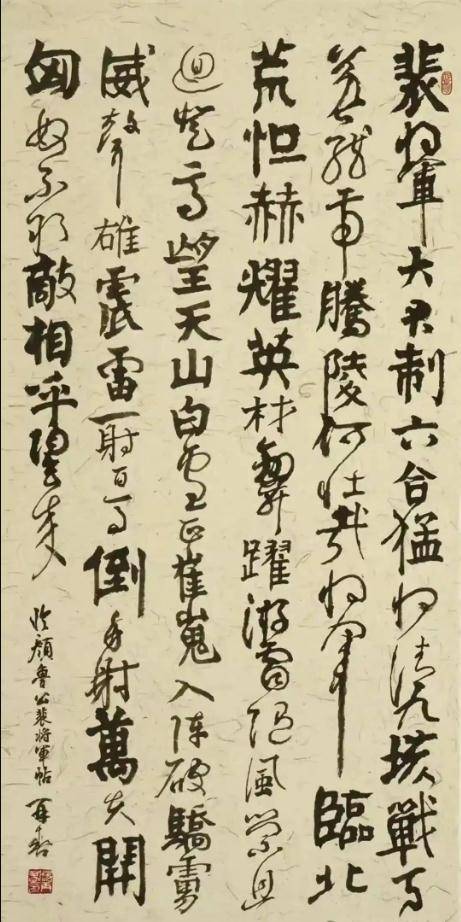 裴将軍大君制六合猛将清九垓戰馬
若龍虎騰陵何壯哉将軍臨北
荒怛赫耀英材劒舞躍游電随風縈且
迴登高望天山白雲正崔嵬入陣破驕虜
威聲雄震雷一射百馬倒再射萬夫開
匈奴不敢敵相呼歸去来
臨顔魯公裴将軍帖